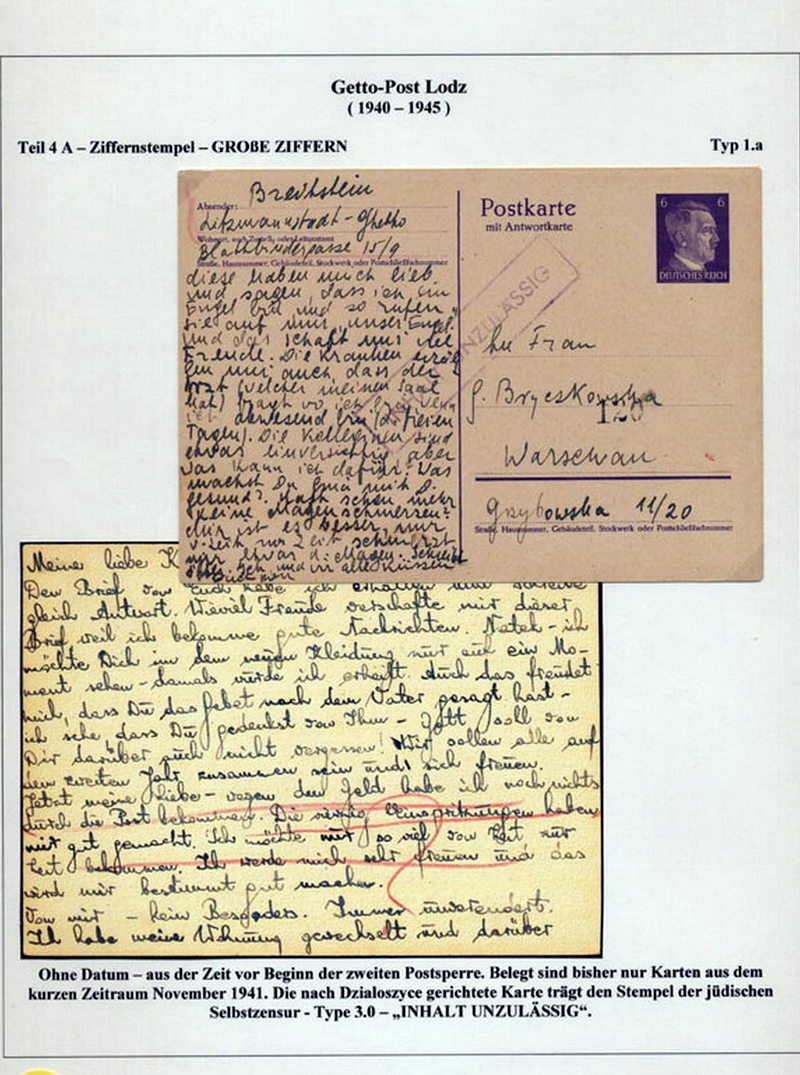 Getto-Post Lodz
( 1940 – 1945 )
Teil 4 A – Ziffernstempel – GROßE ZIFFERN
Typ 1.a
Absender: Brechtstein
Litzmannstadt-Ghetto
15/9
Straße, Hausnummer, Gebäudeteil, Stockwerk oder Postschließfachnummer
diese haben mich lieb
und sagen, dass ich ein
Engel bin und so rufen
sie auf mir, unser Engel.
und das schaft mir viel
Freude. Die Kranken
mir auch, dass der
Arzt (welcher meinen Saal
hat) fragt wo ich bin wenn
ich abwesend bin (in freien
Tagen). Die Kolleginen sind
etwas aber
was kann ich dafür. Was
machst Du
gesund? Hast schon mehr
keine Magenschmerzen?
Mir ist es besser, nur
v. Zeit zur Zeit schmerzt
mir etwas d. Magen. Schreibt
Postkarte
mit Antwortkarte
6 6
DEUTSCHES REICH
UNZULÄSSIG
Frau
Bryczkowska
120
Warschau
Grzybowska 11/20
Straße, Hausnummer, Gebäudeteil, Stockwerk oder Postschließfachnummer
Meine liebe K
Den Brief von Euch habe ich erhalten und schreibe
gleich Antwort. Wieviel Freude verschafte mir dieser
Brief weil ich bekomme gute Nachrichten. Natek – ich
möchte Dich in dem neuen Kleidung nur auf ein Mo-
ment sehen – damals würde ich Auch das freudet
mich, dass Du das Gebet nach dem Vater gesagt hast –
ich sehe, dass Du gedenkst von Ihm – Gott soll von
Dir darüber auch nicht vergessen! Wir sollen alle auf
dem zweiten Jahr zusammen sein und sich freuen.
Jetzt meine Liebe – wegen dem Geld habe ich noch nichts
durch die Post bekommen. Die Einspritzungen haben
mir gut gemacht. Ich möchte nur so viel von Zeit zur
Zeit bekommen. Ich werde mich sehr freuen und das
wird mir bestimmt gut machen.
Von mir – kein Besonders. Immer unverendert.
Ich habe meine Wohnung gewechselt und darüber
Ohne Datum – aus der Zeit vor Beginn der zweiten Postsperre. Belegt sind bisher nur Karten aus dem
kurzen Zeitraum November 1941. Die nach Dzialoszyce gerichtete Karte trägt den Stempel der jüdischen
Selbstzensur - Type 3.0 – „INHALT UNZULÄSSIG“.